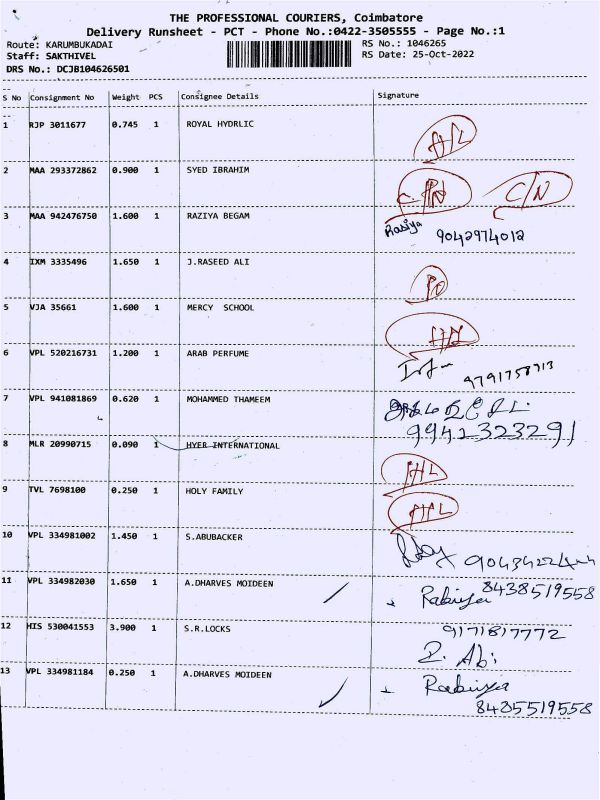 THE PROFESSIONAL COURIERS, Coimbatore
Delivery Runsheet - PCT - Phone No.:0422-3505555 - Page No.:1
Route: KARUMBUKADAI
RS No.: 1046265
Staff: SAKTHIVEL
RS Date: 25-Oct-2022
DRS No.: DCJB104626501
S No Consignment No Weight PCS Consignee Details Signature
1 RJP 3011677 0.745 1 ROYAL HYDRLIC
2 MAA 293372862 0.900 1 SYED IBRAHIM C/N
3 MAA 942476750 1.600 1 RAZIYA BEGAM Rasiya
9042974012
4 IXM 3335496 1.650 1 J.RASEED ALI
5 VJA 35661 1.600 1 MERCY SCHOOL
6 VPL 520216731 1.200 1 ARAB PERFUME
9791758913
7 VPL 941081869 0.620 1 MOHOMMED THAMEEM
9942323291
8 MLR 20990715 0.090 1 HYER INTERNATIONAL
9 TVL 7698100 0.250 1 HOLY FAMILY
10 VPL 334981002 1.450 1 S.ABUBACKER
11 VPL 334982030 1.650 1 A.DHARVES MOIDEEN Rabiya 8438519558
12 HIS 530041553 3.900 1 S.R.LOCKS 9171817772
R. Abi
13 VPL 334981184 0.250 1 A.DHARVES MOIDEEN Rabiya
8435519558